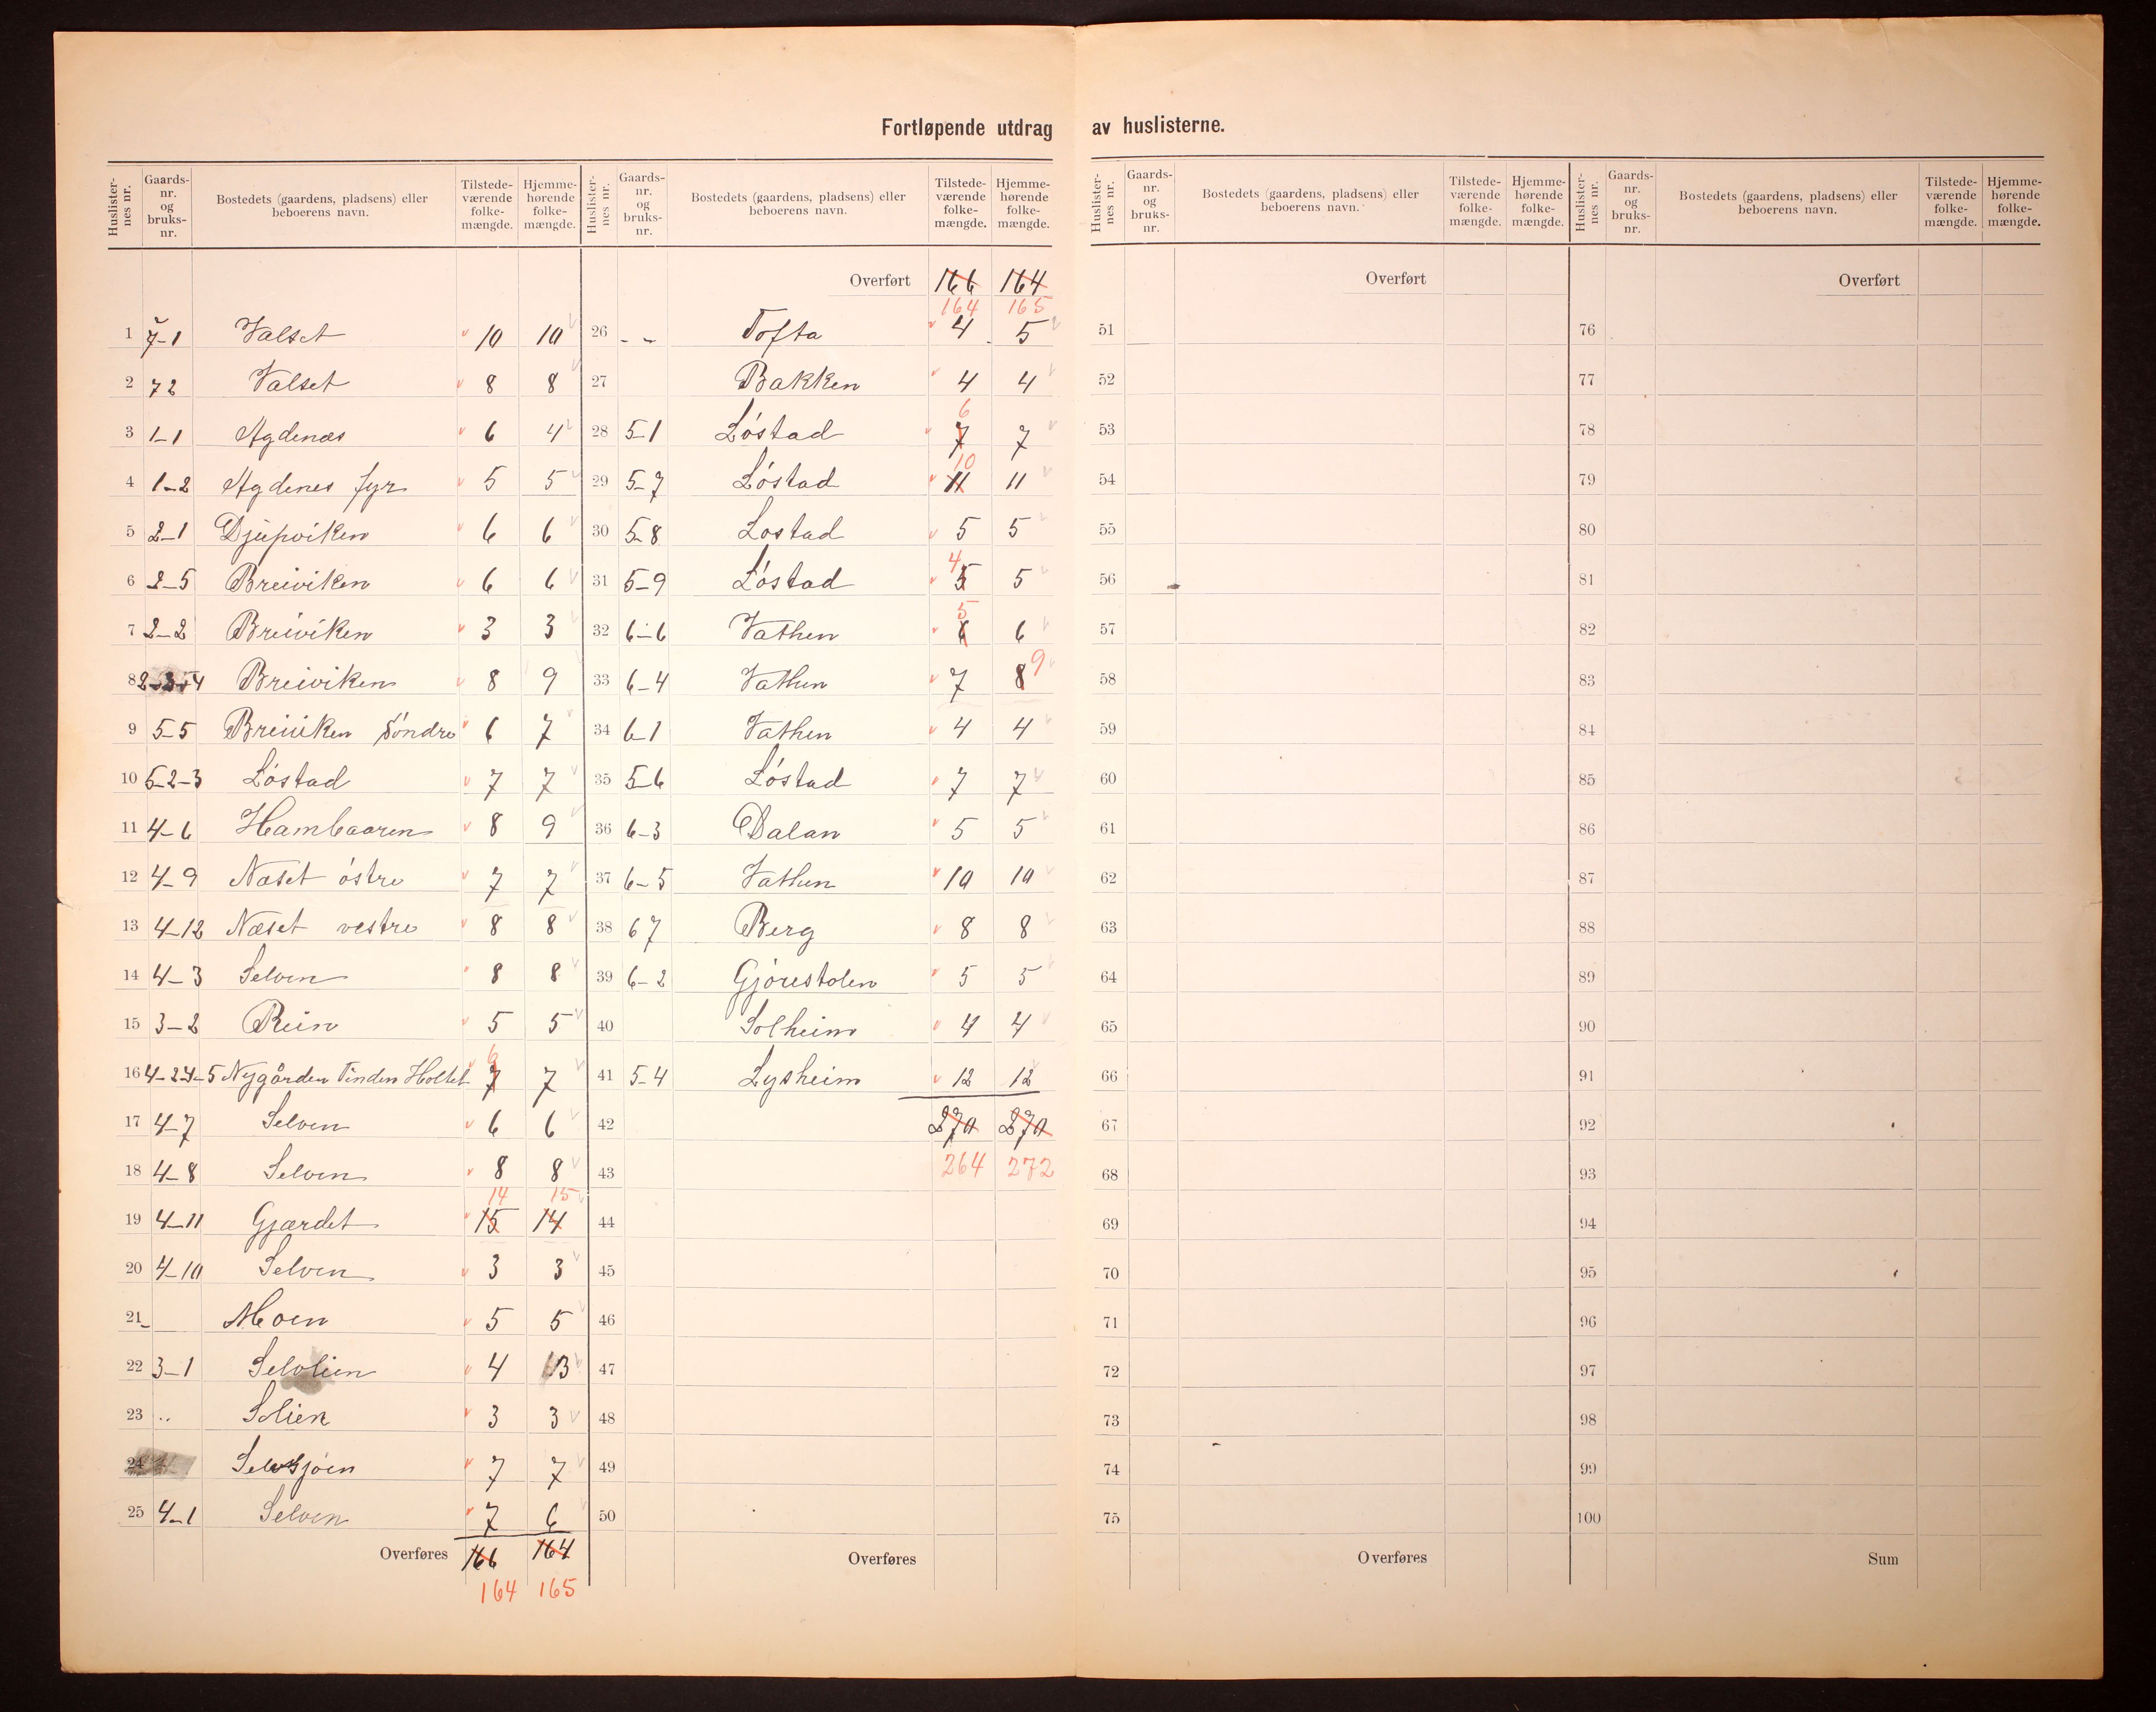 Fortløpende utdrag av huslisterne.
Huslisternes nr. Gaards-nr. og bruks-nr. Bostedets (gaardens, pladsens) eller beboerens navn. Tilstede-værende folke-mængde. Hjemme-hørende folke-mængde.
1 7-1 Valset 10 10
2 72 Valset 8 8
3 1-1 Agdenæs 6 4
4 1-2 Agdenes fyr 5 5
5 2-1 Djupviken 6 6
6 2-5 Breiviken 6 6
7 2-2 Breiviken 3 3
8 2-3-4 Breiviken 8 9
9 5-5 Breiviken Söndre 6 7
10 5-2-3 Löstad 7 7
11 4-6 Hambaaren 8 9
12 4-9 Næset östre 7 7
13 4-12 Næset vestre 8 8
14 4-3 Selven 8 8
15 3-2 Rein 5 5
16 4-2-4-5 Nygården Tinden Holtet 7 6 7
17 4-7 Selven 6 6
18 4-8 Selven 8 8
19 4-11 Gjærdet 15 14 14 15
20 4-10 Selven 3 3
21 - Moen 5 5
22 3-1 Selvlien 4 3
23 .. Solien 3 3
24 Selvsjöen 7 7
25 4-1 Selven 7 6
Overføres 166 164
164 165
Huslisternes nr. Gaards-nr. og bruks-nr. Bostedets (gaardens, pladsens) eller beboerens navn. Tilstede-værende folke-mængde. Hjemme-hørende folke-mængde.
Overført 166 164
164 165
26 - - Tofta 4 5
27 Bakken 4 4
28 5-1 Löstad 7 6 7
29 5-7 Löstad 11 10 11
30 5-8 Lostad 5 5
31 5-9 Löstad 5 4 5
32 6-6 Vathen 6 5 6
33 6-4 Vathen 7 8 9
34 6-1 Vathen 4 4
35 5-6 Löstad 7 7
36 6-3 Dalan 5 5
37 6-5 Vathen 10 10
38 67 Berg 8 8
39 6-2 Gjörestolen 5 5
40 Solheim 4 4
41 5-4 Lysheim 12 12
42 270 270
43 264 272
44
45
46
47
48
49
50
Overføres
Huslisternes nr. Gaards-nr. og bruks-nr. Bostedets (gaardens, pladsens) eller beboerens navn. Tilstede-værende folke-mængde. Hjemme-hørende folke-mængde.
Overført
51
52
53
54
55
56
57
58
59
60
61
62
63
64
65
66
67
68
69
70
71
72
73
74
75
Overføres
Huslisternes nr. Gaards-nr. og bruks-nr. Bostedets (gaardens, pladsens) eller beboerens navn. Tilstede-værende folke-mængde. Hjemme-hørende folke-mængde.
Overført
76
77
78
79
80
81
82
83
84
85
86
87
88
89
90
91
92
93
94
95
96
97
98
99
100
Sum